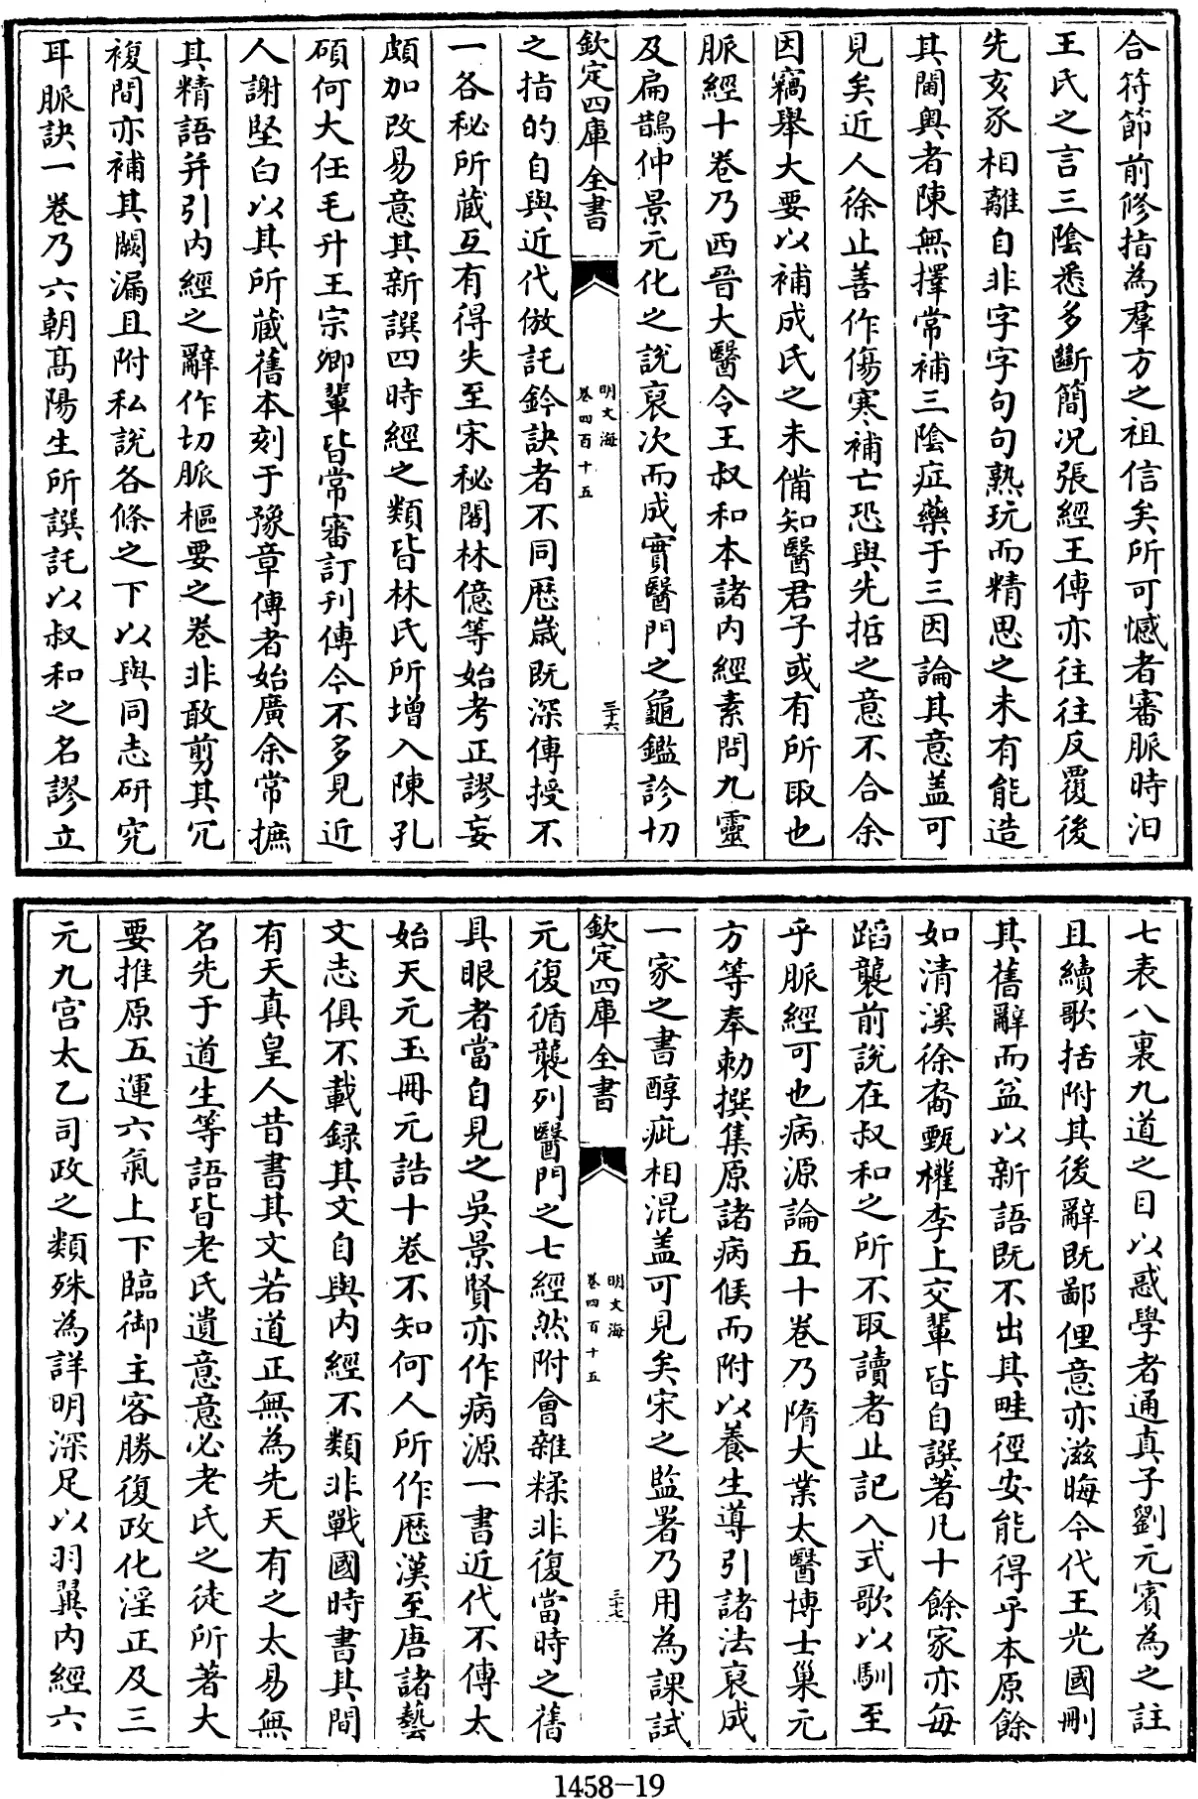 合符節前修指為羣方之祖信矣所可憾者審脈時汨
王氏之言三陰悉多斷簡况張經王傳亦往往反覆後
先亥豕相離自非字字句句熟玩而精思之未有能造
其閫奥者陳無擇常補三陰症藥于三因論其意盖可
見矣近人徐止善作傷寒補亡恐與先哲之意不合余
因竊舉大要以補成氏之未備知醫君子或有所取也
脈經十卷乃西晉大醫令王叔和本諸内經素問九靈
及扁鵲仲景元化之說裒次而成實醫門之龜鑑診切
欽定四庫全書
明文海
卷四百十五
三十六
之指的自與近代倣託鈐訣者不同歷嵗既深傳授不
一各秘所藏互有得失至宋秘閣林億等始考正謬妄
頗加改易意其新譔四時經之類皆林氏所增入陳孔
碩何大任毛升王宗卿輩皆常審訂刋傳今不多見近
人謝堅白以其所藏舊本刻于豫章傳者始廣余常摭
其精語并引内經之辭作切脈樞要之卷非敢剪其冗
複間亦補其闕漏且附私說各條之下以與同志研究
耳脈訣一卷乃六朝髙陽生所譔託以叔和之名謬立
七表八裏九道之目以惑學者通真子劉元賓為之註
且續歌括附其後辭既鄙俚意亦滋晦今代王光國刪
其舊辭而益以新語既不出其畦徑安能得乎本原餘
如清溪徐裔甄權李上交輩皆自譔著凡十餘家亦每
蹈襲前說在叔和之所不取讀者止記入式歌以馴至
乎脈經可也病源論五十卷乃隋大業太醫博士巢元
方等奉勅撰集原諸病候而附以養生導引諸法裒成
一家之書醇疵相混盖可見矣宋之監署乃用為課試
欽定四庫全書
明文海
卷四百十五
三十七
元復循襲列醫門之七經然附會雜糅非復當時之舊
具眼者當自見之吳景賢亦作病源一書近代不傳太
始天元玉冊元誥十卷不知何人所作歷漢至唐諸藝
文志俱不載録其文自與内經不類非戰國時書其間
有天真皇人昔書其文若道正無為先天有之太易無
名先于道生等語皆老氏遺意意必老氏之徒所著大
要推原五運六氣上下臨御主客勝復政化淫正及三
元九宫太乙司政之類殊為詳明深足以羽翼内經六
1458-19